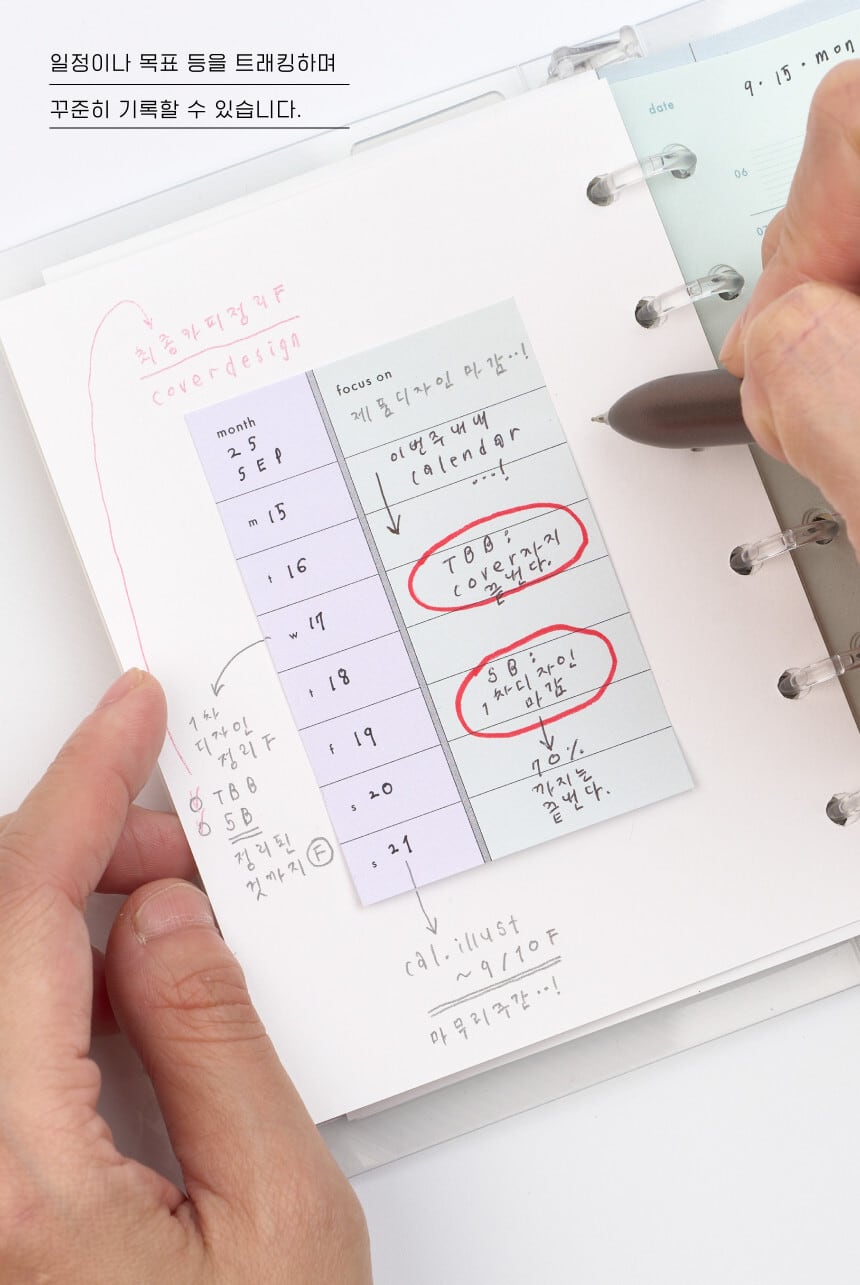 일정이나 목표 등을 트래킹하며
꾸준히 기록할 수 있습니다.
date
9·15·mon
06
최종카피정리F
coverdesign
month
25
SEP
focus on
제품디자인 마감··!
m 15
이번주내내
calendar
···!
t 16
TBB:
cover까지
끝낸다.
w 17
t 18
SB:
1차디자인
마감
f 19
s 20
70%
까지는
끝낸다.
s 21
1차
디자인
정리F
TBB
SB
정리된
것까지 F
cal.illust
~9/10F
마무리주간··!